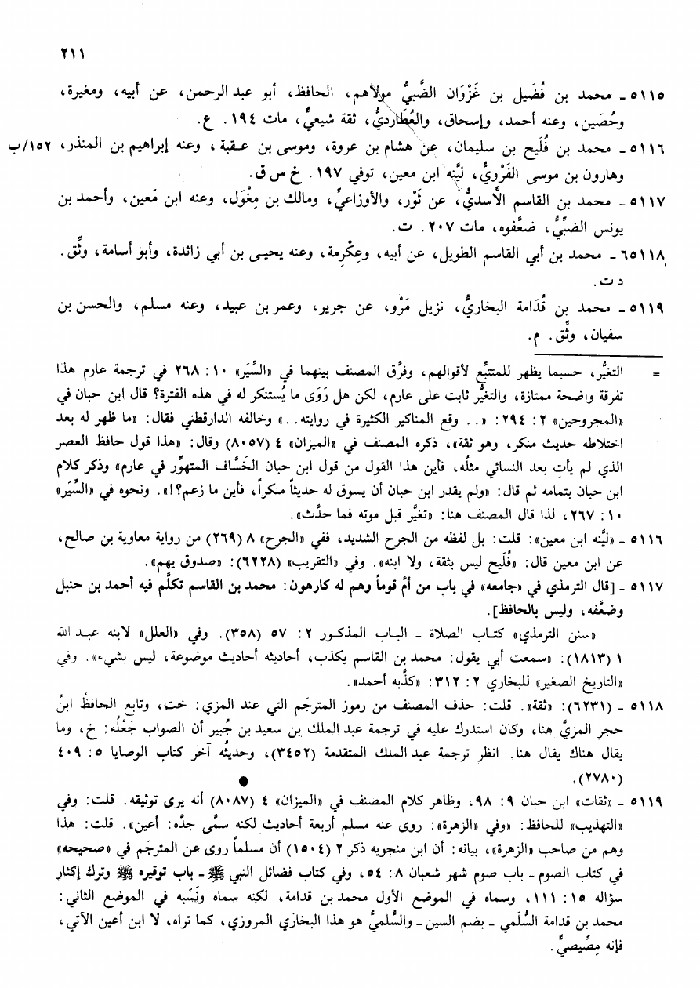 ٢١١
٥١١٥ـ محمد بن فُضَيل بن غَزْوَان الضَّبيُّ مولاهم، الحافظ، أبو عبد الرحمن، عن أبيه، ومغيرة،
وحُصَين، وعنه أحمد، وإسحاق، والعُطَارديُّ، ثقة شيعيٌّ، مات ١٩٤. ع.
٥١١٦ـ محمد بن فُلَيح بن سليمان، عن هشام بن عروة، وموسى بن عقبة، وعنه إبراهيم بن المنذر، ١٥٢/ب
وهارون بن موسى الفَرْويُّ، ليَّنه ابن معين، توفي ١٩٧. خ س ق.
٥١١٧ـ محمد بن القاسم الأسديُّ، عن ثَوْر، والأوزاعيِّ، ومالك بن مِغْوَل، وعنه ابن مَعين، وأحمد بن
يونس الضبِّيُّ، ضعَّفوه، مات ٢٠٧. ت.
٥١١٨ـ محمد بن أبي القاسم الطويل، عن أبيه، وعِكْرمة، وعنه يحيى بن أبي زائدة، وأبو أسامة، وثِّق.
د ت.
٥١١٩ـ محمد بن قُدَامة البخاريُّ، نزيل مَرْو، عن جرير، وعمر بن عبيد، وعنه مسلم، والحسن بن
سفيان، وثِّق. م.
= التغيُّر، حسبما يظهر للمتتبِّع لأقوالهم، وفرَّق المصنف بينهما في «السِّيَر» ١٠: ٢٦٨ في ترجمة عارم هذا
تفرقة واضحة ممتازة، والتغيُّر ثابت على عارم، لكن هل رَوَى ما يُستنكر له في هذه الفترة؟ قال ابن حبان في
«المجروحين» ٢: ٢٩٤: «.. وقع المناكير الكثيرة في روايته..» وخالفه الدارقطني فقال: «ما ظهر له بعد
اختلاطه حديث منكر، وهو ثقة»، ذكره المصنف في «الميزان» ٤ (٨٠٥٧) وقال: «هذا قول حافظ العصر
الذي لم يأتِ بعد النسائي مثلُه، فأين هذا القول من قول ابن حبان الخَسَّاف المتهوِّر في عارم» وذكر كلام
ابن حبان بتمامه ثم قال: «ولم يقدر ابن حبان أن يسوق له حديثاً منكراً، فأين ما زعم؟!». ونحوه في «السِّيَر»
١٠: ٢٦٧، لذا قال المصنف هنا: «تغيَّر قبل موته فما حدَّث».
٥١١٦ـ «ليَّنه ابن معين»: قلت: بل لفظه من الجرح الشديد، ففي «الجرح» ٨ (٢٦٩) من رواية معاوية بن صالح،
عن ابن معين قال: «فُلَيح ليس بثقة، ولا ابنه». وفي «التقريب» (٦٢٢٨): «صدوق يهم».
٥١١٧ـ [قال الترمذي في «جامعه» في باب من أمَّ قوماً وهم له كارهون: محمد بن القاسم تكلَّم فيه أحمد بن حنبل
وضعَّفه، وليس بالحافظ].
«سنن الترمذي» كتاب الصلاة ـ الباب المذكور ٢: ٥٧ (٣٥٨). وفي «العلل» لابنه عبد الله
١ (١٨١٣): «سمعت أبي يقول: محمد بن القاسم يكذب، أحاديثه أحاديث موضوعة، ليس بشيء». وفي
«التاريخ الصغير» للبخاري ٢: ٣١٢: «كذَّبه أحمد».
٥١١٨ـ (٦٢٣١): «ثقة». قلت: حذف المصنف من رموز المترجَم التي عند المزي: خت، وتابع الحافظُ ابنُ
حجر المزيَّ هنا، وكان استدرك عليه في ترجمة عبد الملك بن سعيد بن جُبير أن الصواب جَعْلُه: خ، وما
يقال هناك يقال هنا. انظر ترجمة عبد الملك المتقدمة (٣٤٥٢)، وحديثُه آخر كتاب الوصايا ٥: ٤٠٩
(٢٧٨٠).
٥١١٩ـ «ثقات» ابن حبان ٩: ٩٨، وظاهر كلام المصنف في «الميزان» ٤ (٨٠٨٧) أنه يرى توثيقه. قلت: وفي
«التهذيب» للحافظ: «وفي «الزهرة»: روى عنه مسلم أربعة أحاديث لكنه سمَّى جدَّه: أعين». قلت: هذا
وهم من صاحب «الزهرة»، بيانه: أن ابن منجويه ذكر ٢ (١٥٠٤) أن مسلماً روى عن المترجَم في «صحيحه»
في كتاب الصوم ـ باب صوم شهر شعبان ٨: ٥٤، وفي كتاب فضائل النبي ﷺ ـ باب توقيره ﷺ وترك إكثار
سؤاله ١٥: ١١١، وسماه في الموضع الأول محمد بن قدامة، لكنه سماه ونَسَبه في الموضع الثاني:
محمد بن قدامة السُّلَمي ـ بضم السين ـ والسُّلميُّ هو هذا البخاري المروزي، كما تراه، لا ابن أعين الآتي،
فإنه مِصِّيصيٌّ.